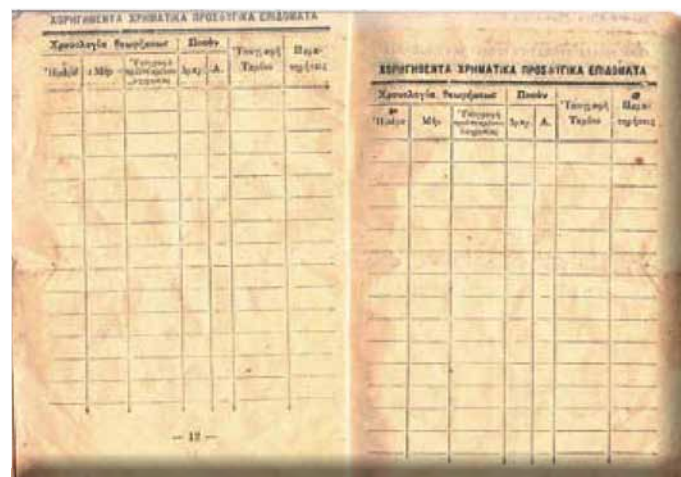 ΧΟΡΗΓΗΘΕΝΤΑ ΧΡΗΜΑΤΙΚΑ ΠΡΟΣΦΥΓΙΚΑ ΕΠΙΔΟΜΑΤΑ
Χρονολογία θεωρήσεως Ποσὸν Ὑπογραφὴ Ταμίου Παρα-τηρήσεις
Ἡμέρα Μὴν Ὑπογραφὴ προϊσταμένου ὑπηρεσίας Δραχ. Λ.
— 12 —
ΧΟΡΗΓΗΘΕΝΤΑ ΧΡΗΜΑΤΙΚΑ ΠΡΟΣΦΥΓΙΚΑ ΕΠΙΔΟΜΑΤΑ
Χρονολογία θεωρήσεως Ποσὸν Ὑπογραφὴ Ταμίου Παρα-τηρήσεις
Ἡμέρα Μὴν Ὑπογραφὴ προϊσταμένου ὑπηρεσίας Δραχ. Λ.